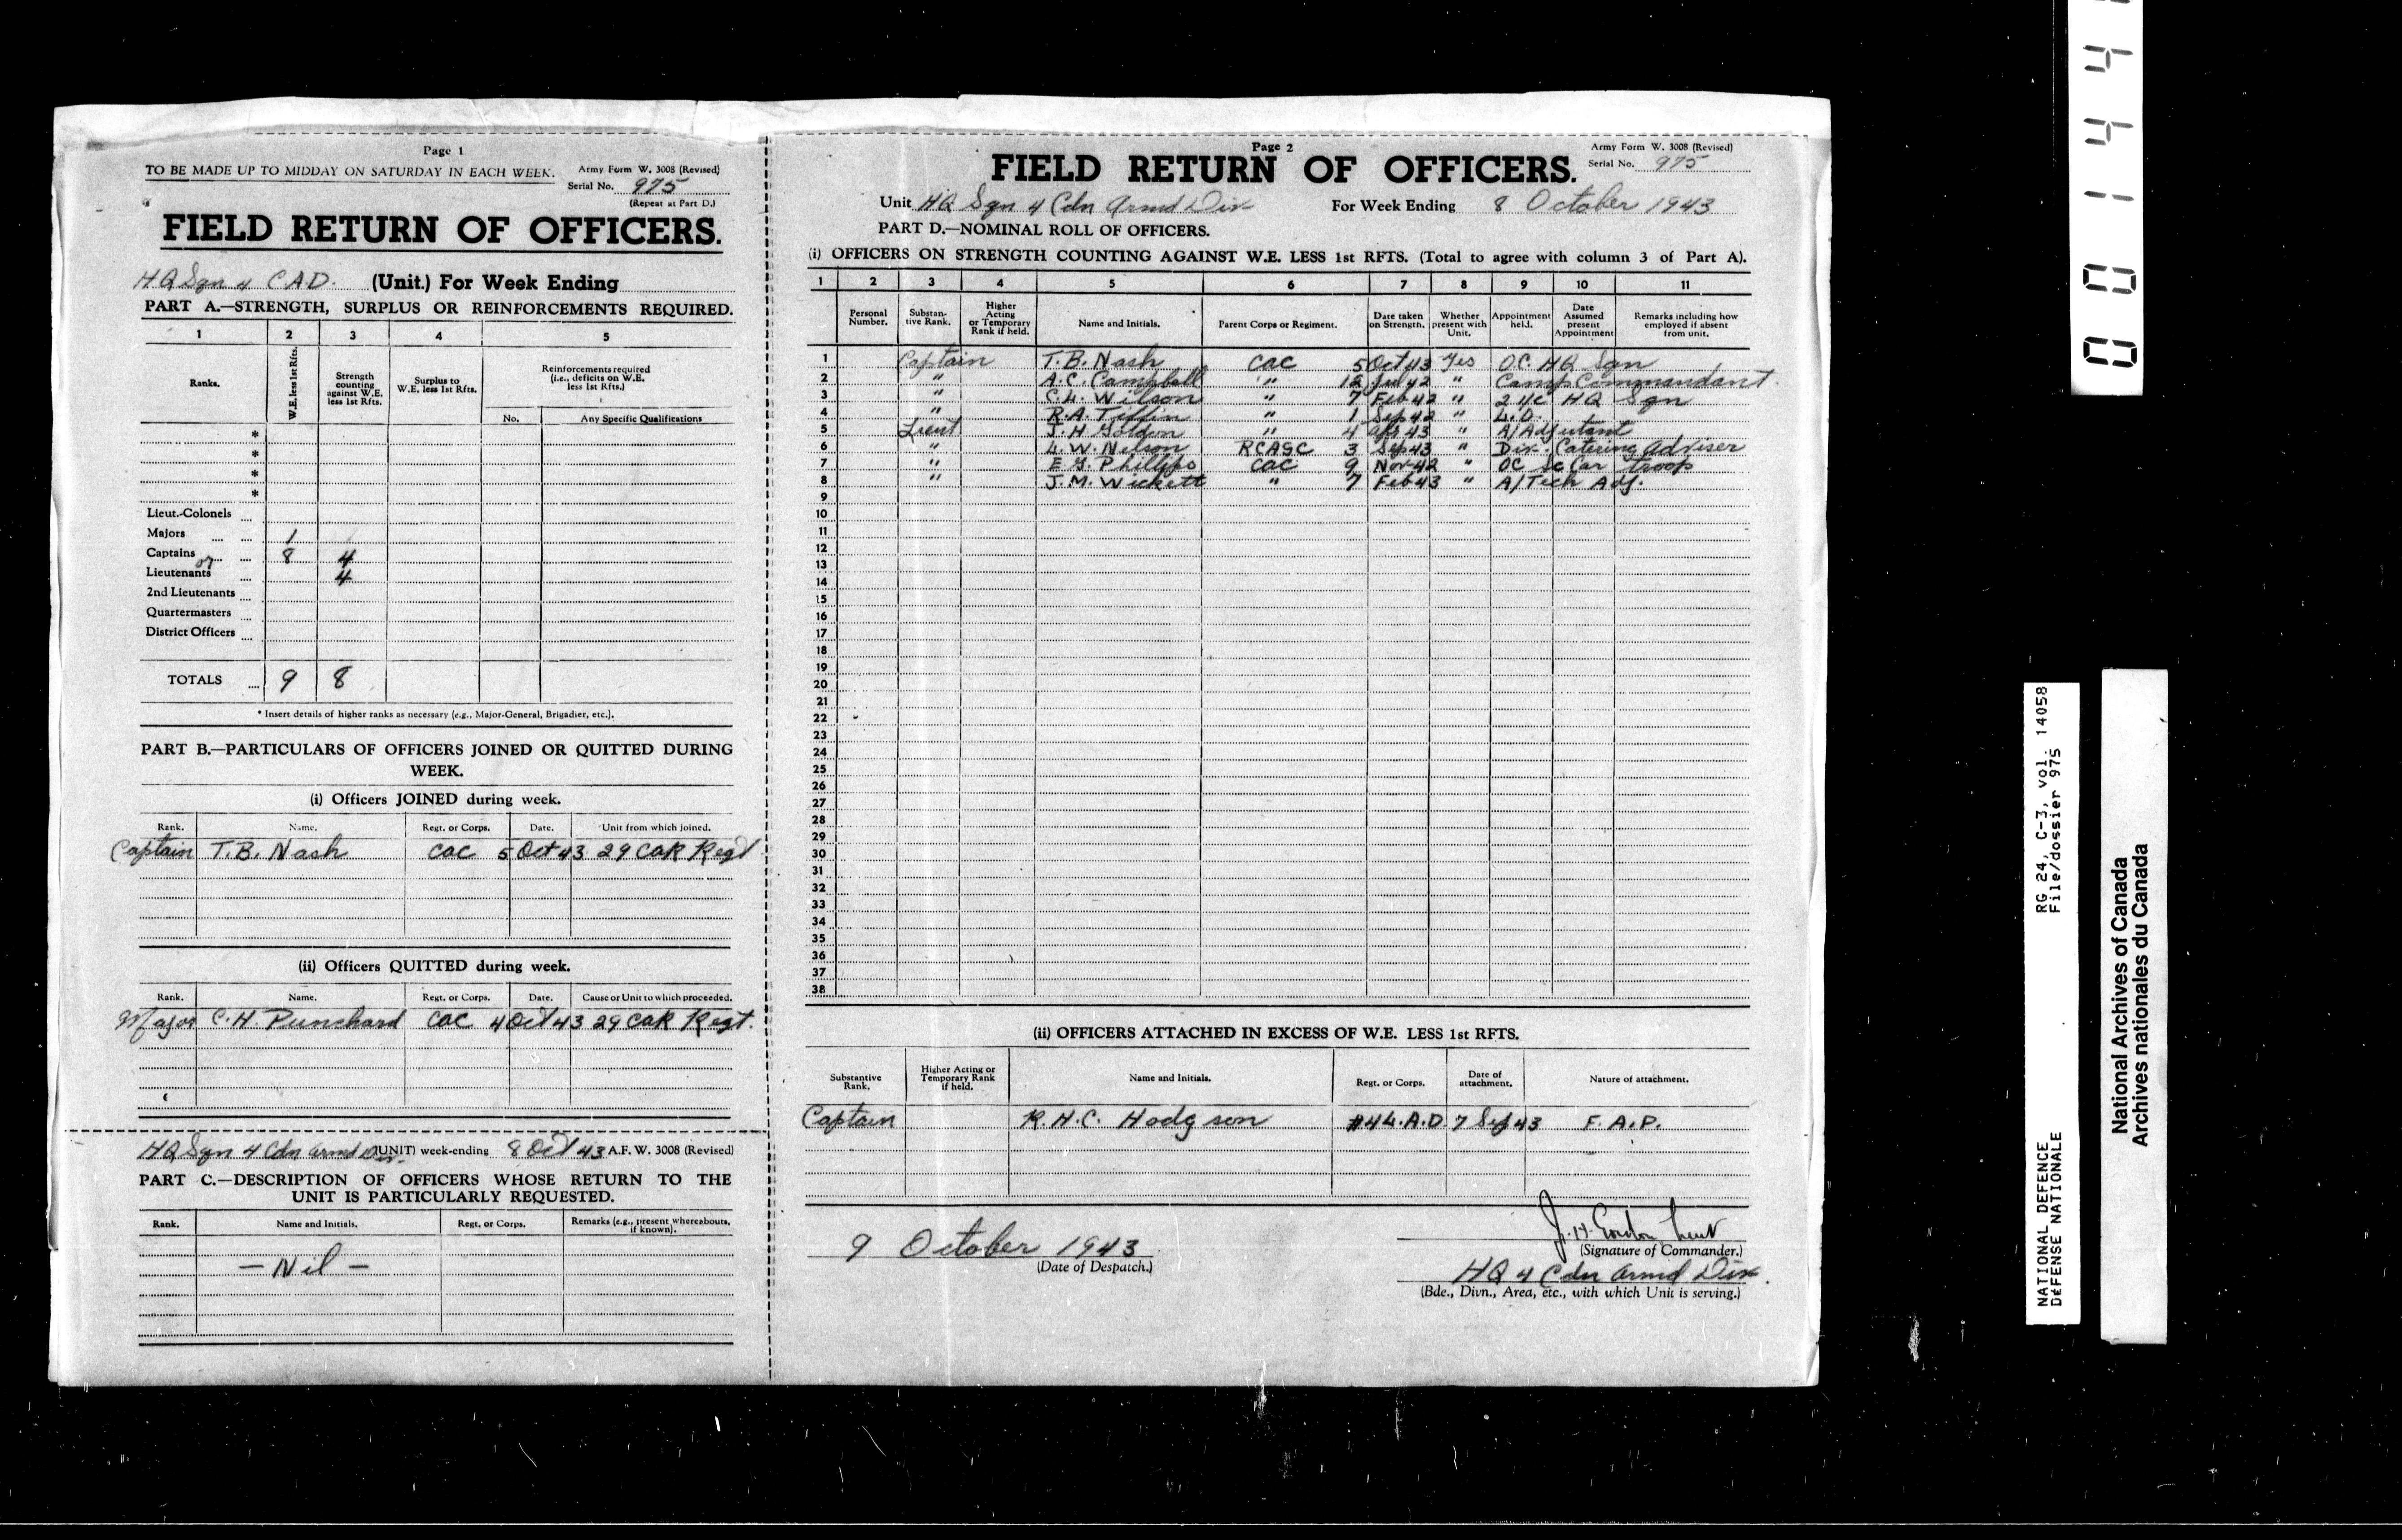 Page 1
TO BE MADE UP TO MIDDAY ON SATURDAY IN EACH WEEK.
Army Form W. 3008 (Revised)
Serial No. 975
(Repeat at Part D.)
FIELD RETURN OF OFFICERS.
HQ Sqn 4 CAD. (Unit.) For Week Ending
PART A.—STRENGTH, SURPLUS OR REINFORCEMENTS REQUIRED.
1 2 3 4 5
Ranks.
W.E. less 1st Rfts.
Strength counting against W.E. less 1st Rfts.
Surplus to W.E. less 1st Rfts.
Reinforcements required (i.e., deficits on W.E. less 1st Rfts.)
No. Any Specific Qualifications
*
*
*
*
Lieut.-Colonels ....
Majors .... .... 1
Captains .... .... 8 4
or
Lieutenants .... 4
2nd Lieutenants ....
Quartermasters
District Officers ....
TOTALS .... 9 8
* Insert details of higher ranks as necessary (e.g., Major-General, Brigadier, etc.).
PART B.—PARTICULARS OF OFFICERS JOINED OR QUITTED DURING
WEEK.
(i) Officers JOINED during week.
Rank. Name. Regt. or Corps. Date. Unit from which joined.
Captain T.B. Nash CAC 5 Oct 43 29 CAR Regt
(ii) Officers QUITTED during week.
Rank. Name. Regt. or Corps. Date. Cause or Unit to which proceeded.
Major C.H. Punchard CAC 4 Oct 43 29 CAR Regt.
HQ Sqn 4 Cdn Armd Div. (UNIT) week-ending 8 Oct 43 A.F. W. 3008 (Revised)
PART C.—DESCRIPTION OF OFFICERS WHOSE RETURN TO THE
UNIT IS PARTICULARLY REQUESTED.
Rank. Name and Initials. Regt. or Corps. Remarks (e.g., present whereabouts, if known).
— Nil —
Page 2
Army Form W. 3008 (Revised)
FIELD RETURN OF OFFICERS.
Serial No. 975
Unit HQ Sqn 4 Cdn Armd Div For Week Ending 8 October 1943
PART D.—NOMINAL ROLL OF OFFICERS.
(i) OFFICERS ON STRENGTH COUNTING AGAINST W.E. LESS 1st RFTS. (Total to agree with column 3 of Part A).
1 2 3 4 5 6 7 8 9 10 11
Personal Number.
Substantive Rank.
Higher Acting or Temporary Rank if held.
Name and Initials.
Parent Corps or Regiment.
Date taken on Strength.
Whether present with Unit.
Appointment held.
Date Assumed present Appointment
Remarks including how employed if absent from unit.
1 Captain T.B. Nash CAC 5 Oct 43 Yes O.C. HQ Sqn
2 " A.C. Campbell " 12 Jul 42 " Camp Commandant
3 " C.L. Wilson " 7 Feb 42 " 2 i/c HQ Sqn
4 " R.A. Tiffin " 1 Sep 42 " L.O.
5 Lieut J.H. Gordon " 4 Apr 43 " A/Adjutant
6 " L.W. Nelson RCASC 3 Sep 43 " Div. Catering Adviser
7 " E.G. Phillips CAC 9 Nov 42 " OC Sc Car Troop
8 " J.M. Wickett " 7 Feb 43 " A/Tech Adj.
9
10
11
12
13
14
15
16
17
18
19
20
21
22
23
24
25
26
27
28
29
30
31
32
33
34
35
36
37
38
(ii) OFFICERS ATTACHED IN EXCESS OF W.E. LESS 1st RFTS.
Substantive Rank.
Higher Acting or Temporary Rank if held.
Name and Initials.
Regt. or Corps.
Date of attachment.
Nature of attachment.
Captain R.H.C. Hodgson #4 L.A.D. 7 Sep 43 F.A.P.
9 October 1943
(Date of Despatch.)
J.H. Gordon Lieut
(Signature of Commander.)
HQ 4 Cdn Armd Div.
(Bde., Divn., Area, etc., with which Unit is serving.)
RG 24, C-3, vol. 14058
File/dossier 975
NATIONAL DEFENCE
DÉFENSE NATIONALE
National Archives of Canada
Archives nationales du Canada